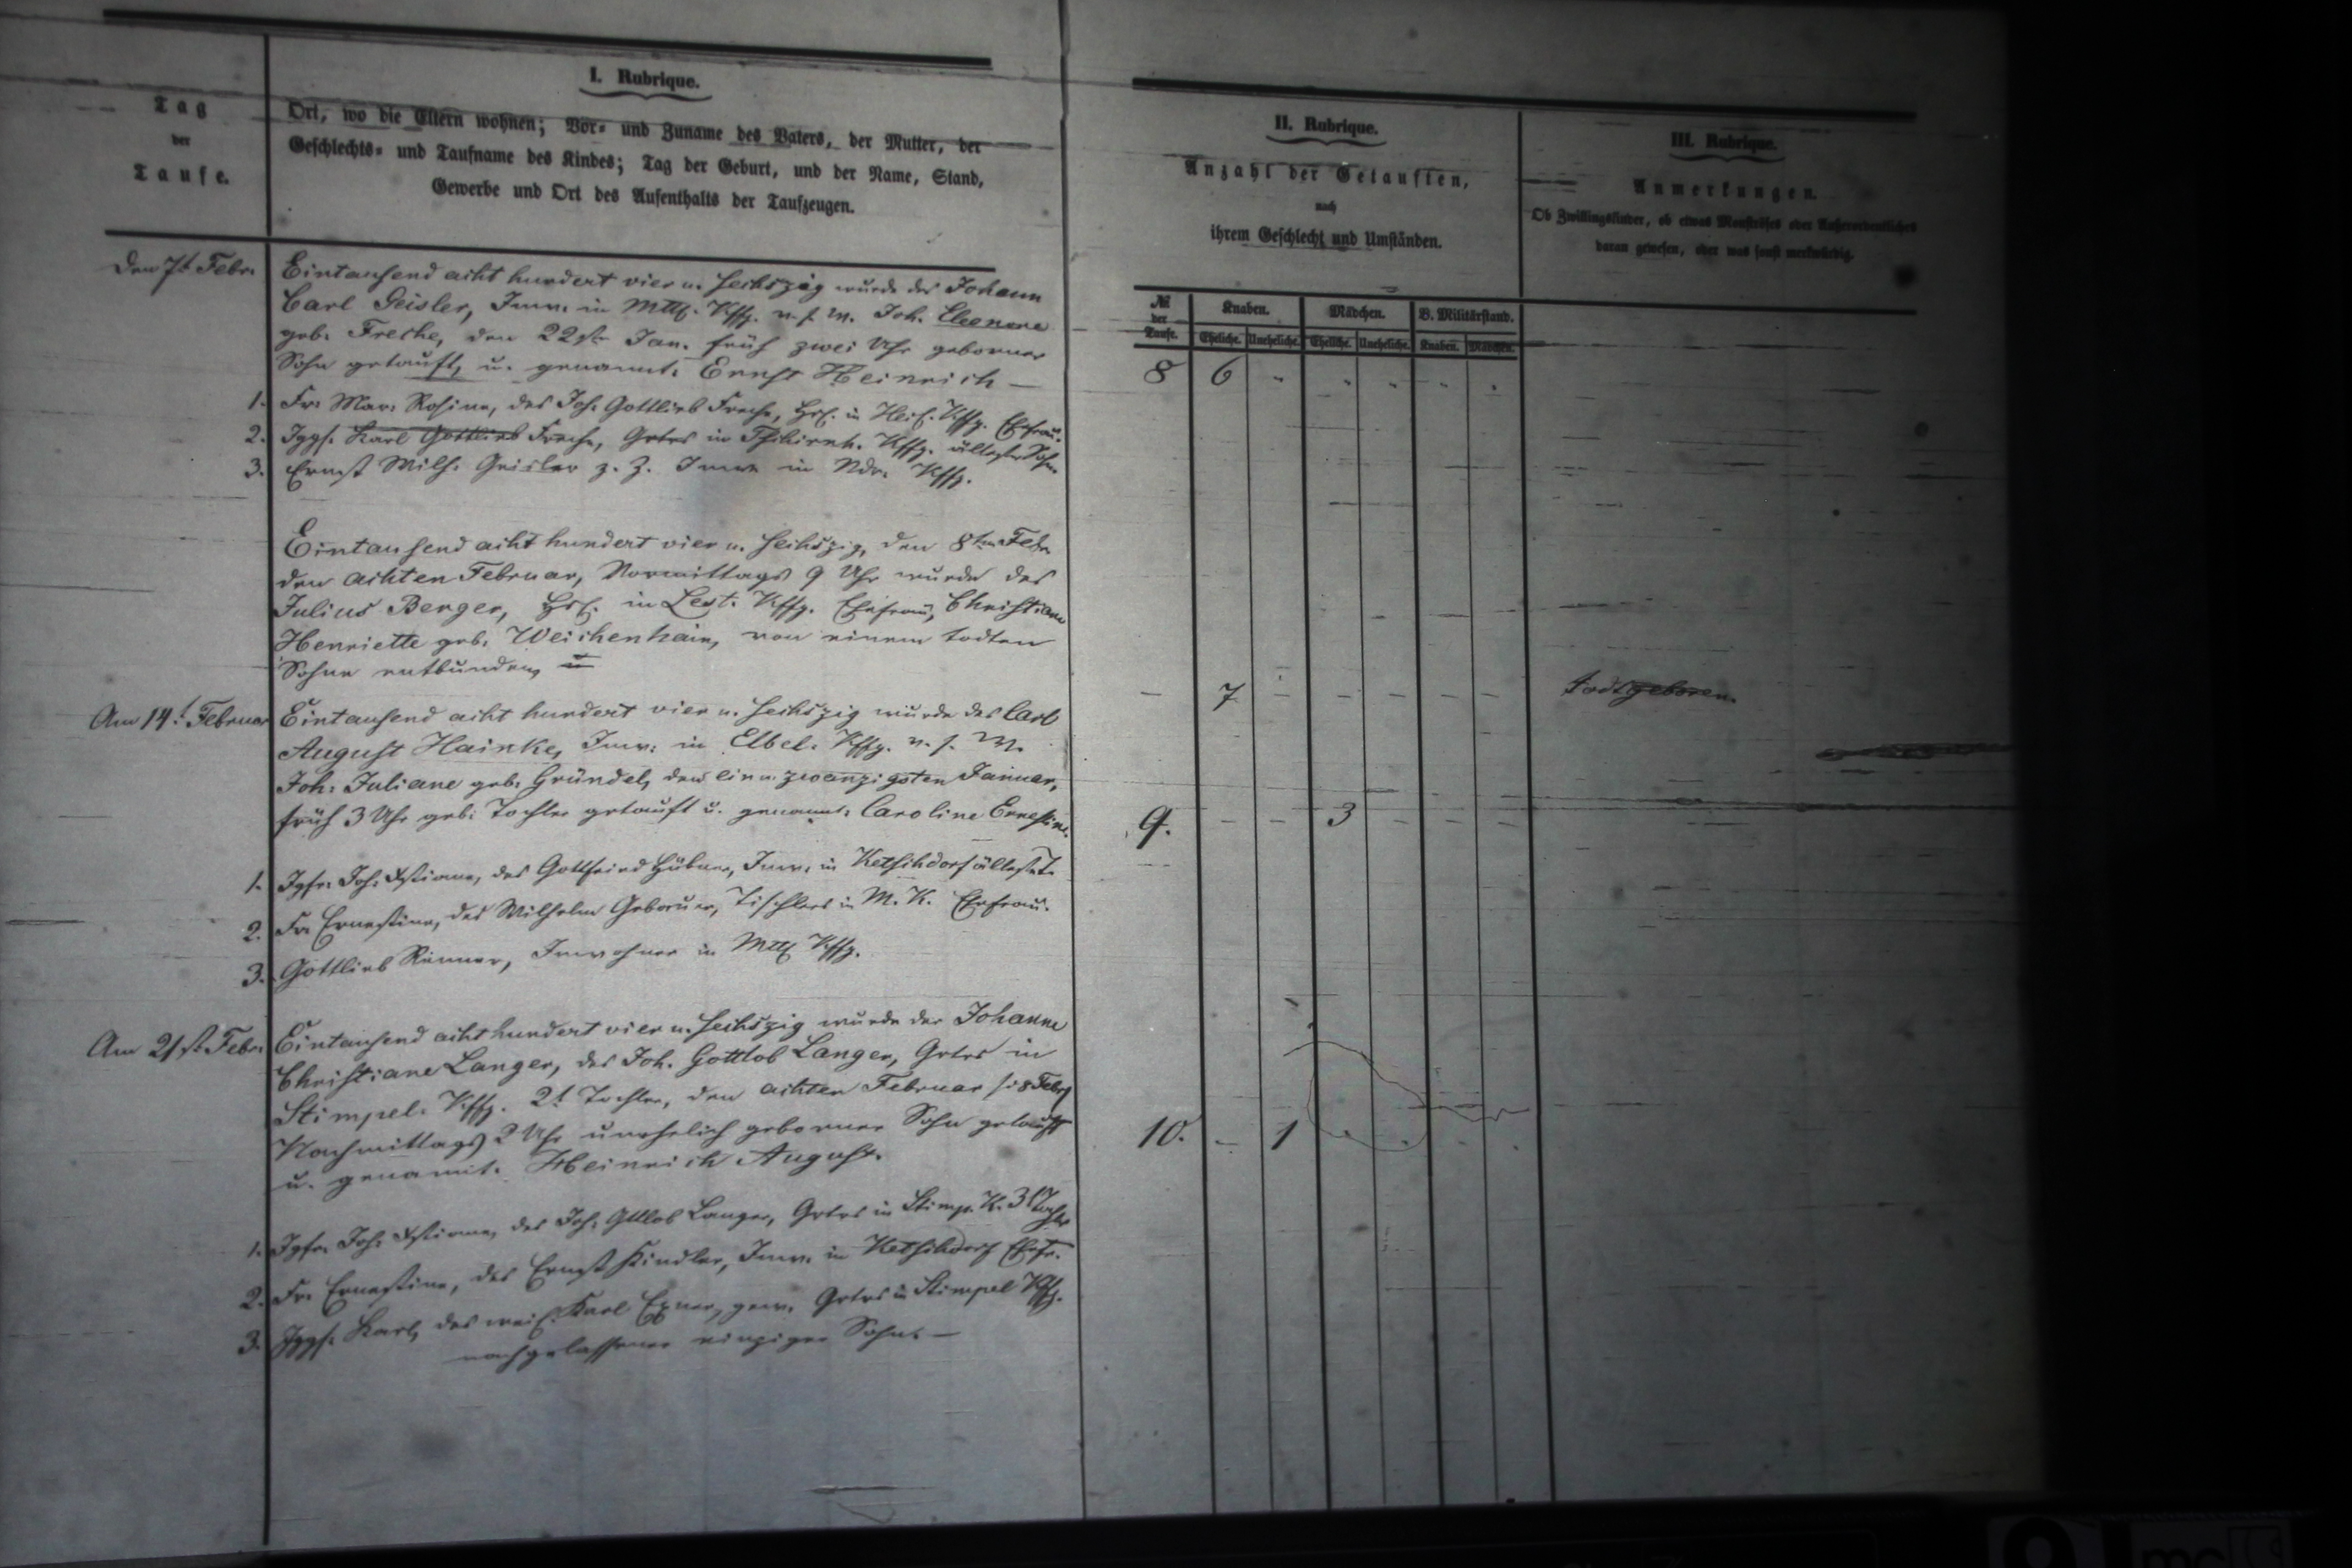 I. Rubrique.
Tag
der
Taufe.
Ort, wo die Eltern wohnen; Vor- und Zuname des Vaters, der Mutter, der
Geschlechts- und Taufname des Kindes; Tag der Geburt, und der Name, Stand,
Gewerbe und Ort des Aufenthalts der Taufzeugen.
II. Rubrique.
Anzahl der Getauften,
nach
ihrem Geschlecht und Umständen.
III. Rubrique.
Anmerkungen.
Ob Zwillingskinder, ob etwas Monströses oder Außerordentliches
daran gewesen, oder was sonst merkwürdig.
№ der Taufe.
Knaben. Mädchen. B. Militärstand.
Eheliche. Uneheliche. Eheliche. Uneheliche. Knaben. Mädchen.
Den 7t. Febr. Eintausend acht hundert vier u. sechszig wurde des Johann
Carl Geisler, Inw. in Mttl. Kffg. u. s. W. Joh. Eleonore
geb. Freche, den 22st. Jan. früh zwei Uhr geborner
Sohn getauft, u. genannt: Ernst Heinrich —
8 6
1. Fr. Mar. Rosine, des Joh. Gottlieb Freche, Hsl. in Kffg. Ehefrau.
2. Jggs. Karl Gottlieb Freche, Grtrs in Tschirnh. Kffg. ältester Sohn
3. Ernst Wilh. Geisler z. Z. Inwr in Ndr. Kffg.
Eintausend acht hundert vier u. sechszig, den 8ten Febr.
den achten Februar, Vormittags 9 Uhr wurde des
Julius Berger, Hsl. in Lest. Kffg. Ehefrau, Christiane
Henriette geb. Weichenhain, von einem todten
Sohne entbunden, u
— 7 — — — — — todtgeboren.
Am 14.t Februar Eintausend acht hundert vier u. sechszig wurde des Carl
August Hainke, Inw. in Elbel. Kffg. u. s. W.
Joh. Juliane geb. Gründel, den ein u. zwanzigsten Januar,
früh 3 Uhr geb. Tochter getauft u. genannt: Caroline Ernestine.
9. — — 3 — — —
1. Jgfr. Joh. Xstiane, des Gottfried Hübner, Inw. in Ketschdorf älteste T.
2. Fr. Ernestine, des Wilhelm Geborner, Tischlers in M. K. Ehefrau.
3. Gottlieb Renner, Inwohner in Mttl Kffg.
Am 21st. Febr. Eintausend acht hundert vier u. sechszig wurde der Johanne
Christiane Langer, des Joh. Gottlob Langer, Grtrs in
Stimpel. Kffg. 2t. Tochter, den achten Februar /: 8 Febr
Nachmittags 2 Uhr unehelich geborner Sohn getauft
u. genannt: Heinrich August.
10. — 1
1. Jgfr. Joh. Xstiane, des Joh. Gttlob Langer, Grtrs in Stimp. K. 3t Tochter
2. Fr. Ernestine, des Ernst Kindler, Inw. in Ketschdorf Ehefr.
3. Jggs. Karl, des weil. Karl Exner, gew. Grtrs in Stimpel Kffg.
nachgelassener einziger Sohn. —